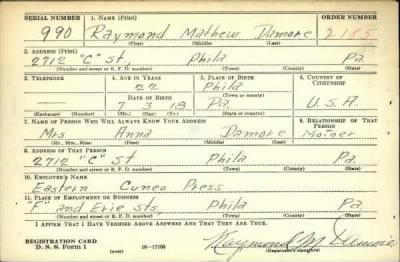 SERIAL NUMBER 1. NAME (Print) ORDER NUMBER
990 Raymond Mathew Damore 2185
(First) (Middle) (Last)
2. ADDRESS (Print)
2712 "C" St. Phila Pa.
(Number and street or R. F. D. number) (Town) (County) (State)
3. TELEPHONE 4. AGE IN YEARS 5. PLACE OF BIRTH 6. COUNTRY OF CITIZENSHIP
22 Phila
(Town or county)
DATE OF BIRTH
— 7 3 18 Pa. U.S.A.
(Exchange) (Number) (Mo.) (Day) (Yr.) (State or country)
7. NAME OF PERSON WHO WILL ALWAYS KNOW YOUR ADDRESS 8. RELATIONSHIP OF THAT PERSON
Mrs Anna Damore Mother
(Mr., Mrs., Miss) (First) (Middle) (Last)
9. ADDRESS OF THAT PERSON
2712 "C" St Phila Pa.
(Number and street or R. F. D. number) (Town) (County) (State)
10. EMPLOYER'S NAME
Eastern Cuneo Press
11. PLACE OF EMPLOYMENT OR BUSINESS
"F" and Erie Sts, Phila Pa.
(Number and street or R. F. D. number) (Town) (County) (State)
I AFFIRM THAT I HAVE VERIFIED ABOVE ANSWERS AND THAT THEY ARE TRUE.
REGISTRATION CARD
D. S. S. Form 1 (over) 16—17105 Raymond M Damore
(Registrant's signature)